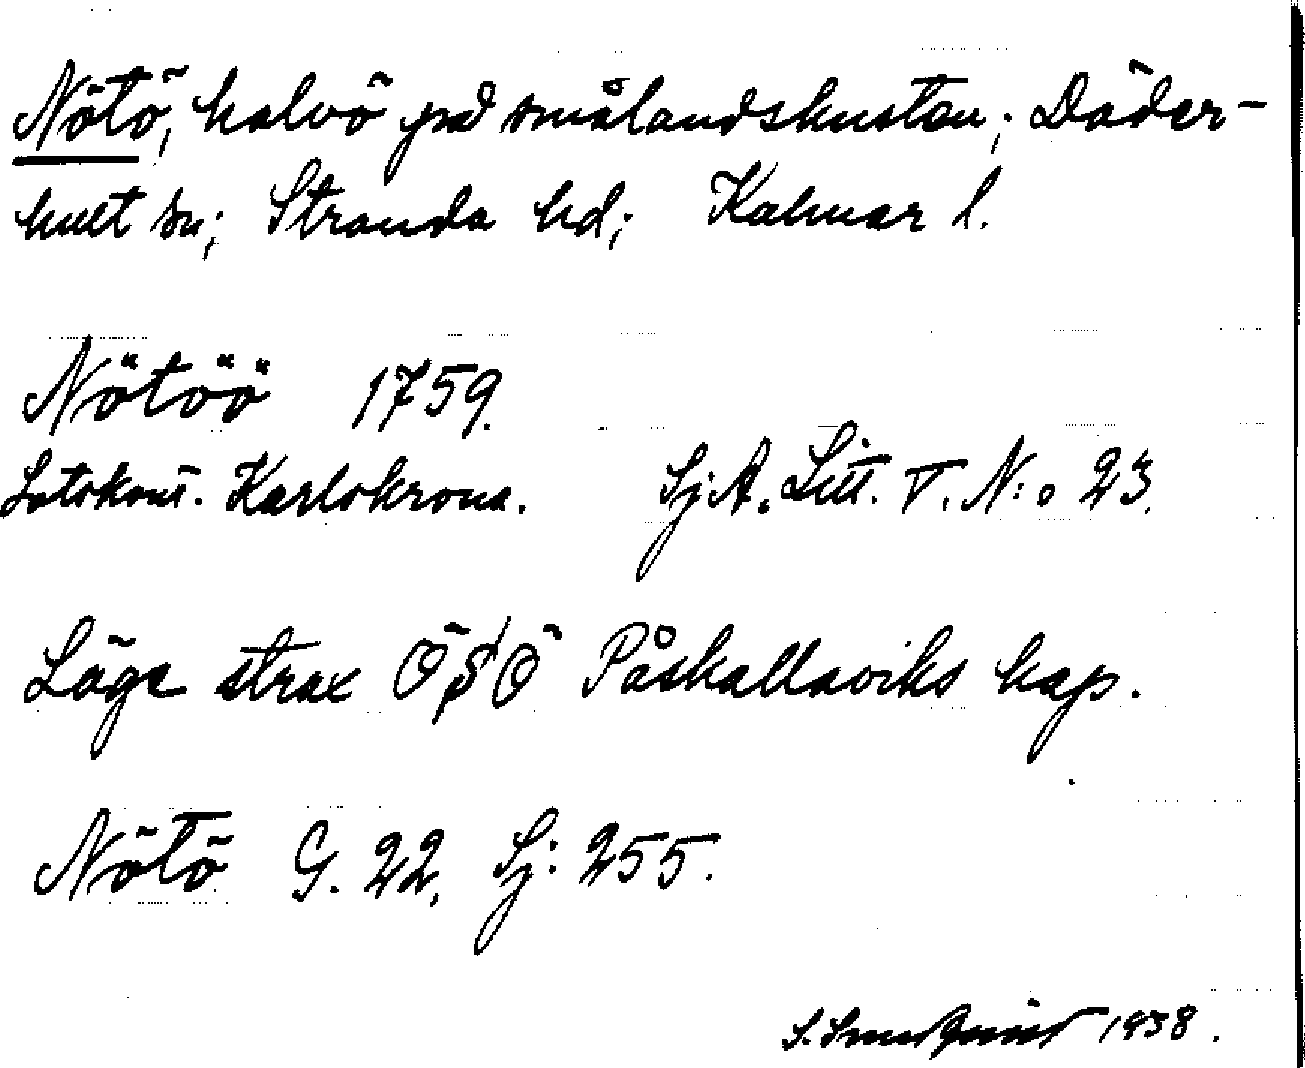 Nötö, halvö på smålandskusten; Döder-
hult sn; Stranda hd; Kalmar l.
Nötöö 1759.
Lotskont. Karlskrona. Sj.A. Litt. V. N:o 23.
Läge strax ÖSÖ Påskallaviks kap.
Nötö G. 22, Sj: 255.
1938.